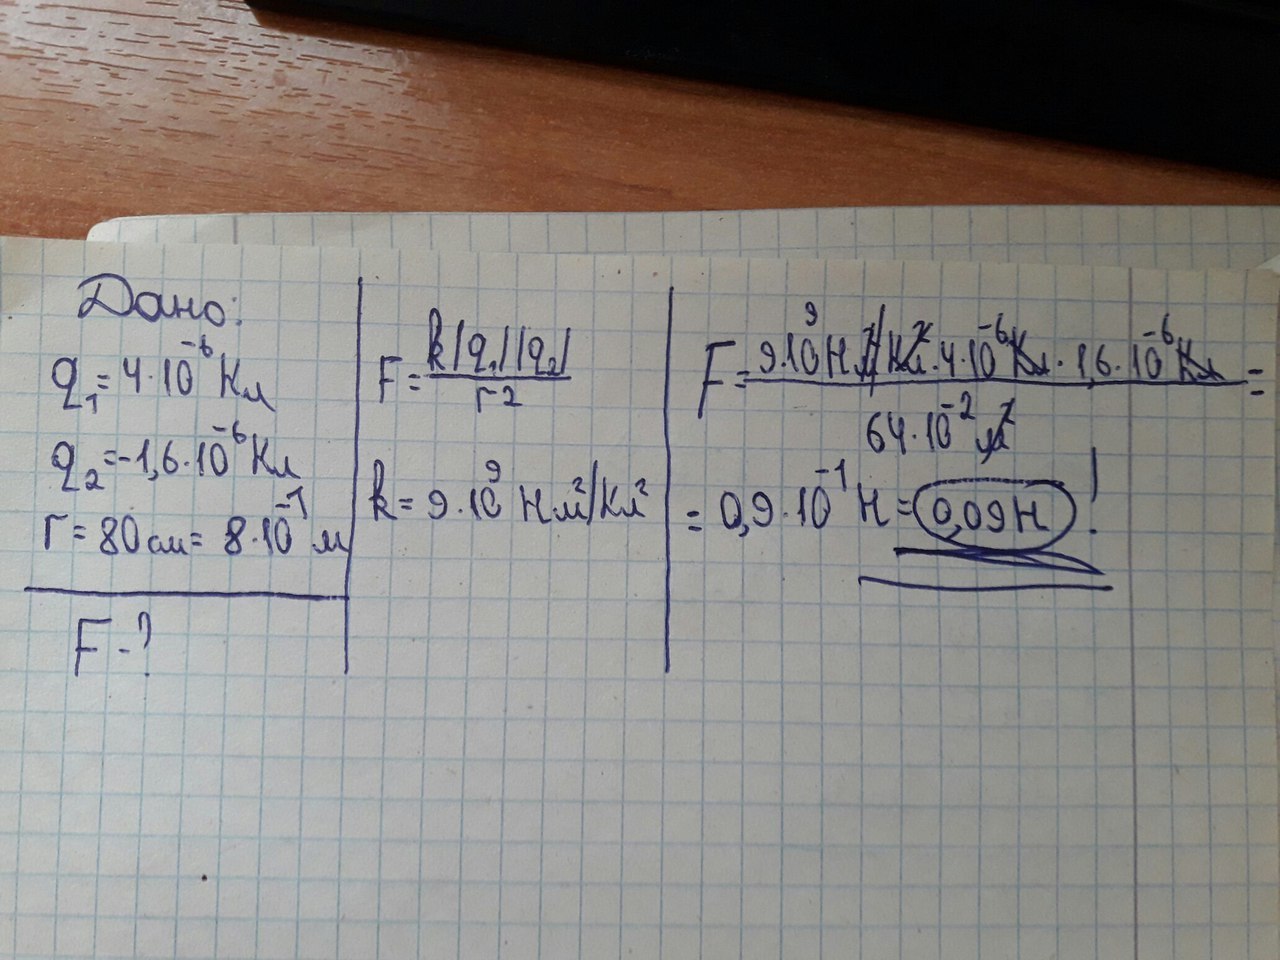 Дано:
q₁ = 4·10⁻⁶ Кл
q₂ = -1,6·10⁻⁶ Кл
r = 80 см = 8·10⁻¹ м
F - ?
F = k|q₁||q₂| / r²
k = 9·10⁹ Нм²/Кл²
F = 9·10⁹ Нм²/Кл²·4·10⁻⁶ Кл·1,6·10⁻⁶ Кл / 64·10⁻² м² =
= 0,9·10⁻¹ Н = 0,09 Н !